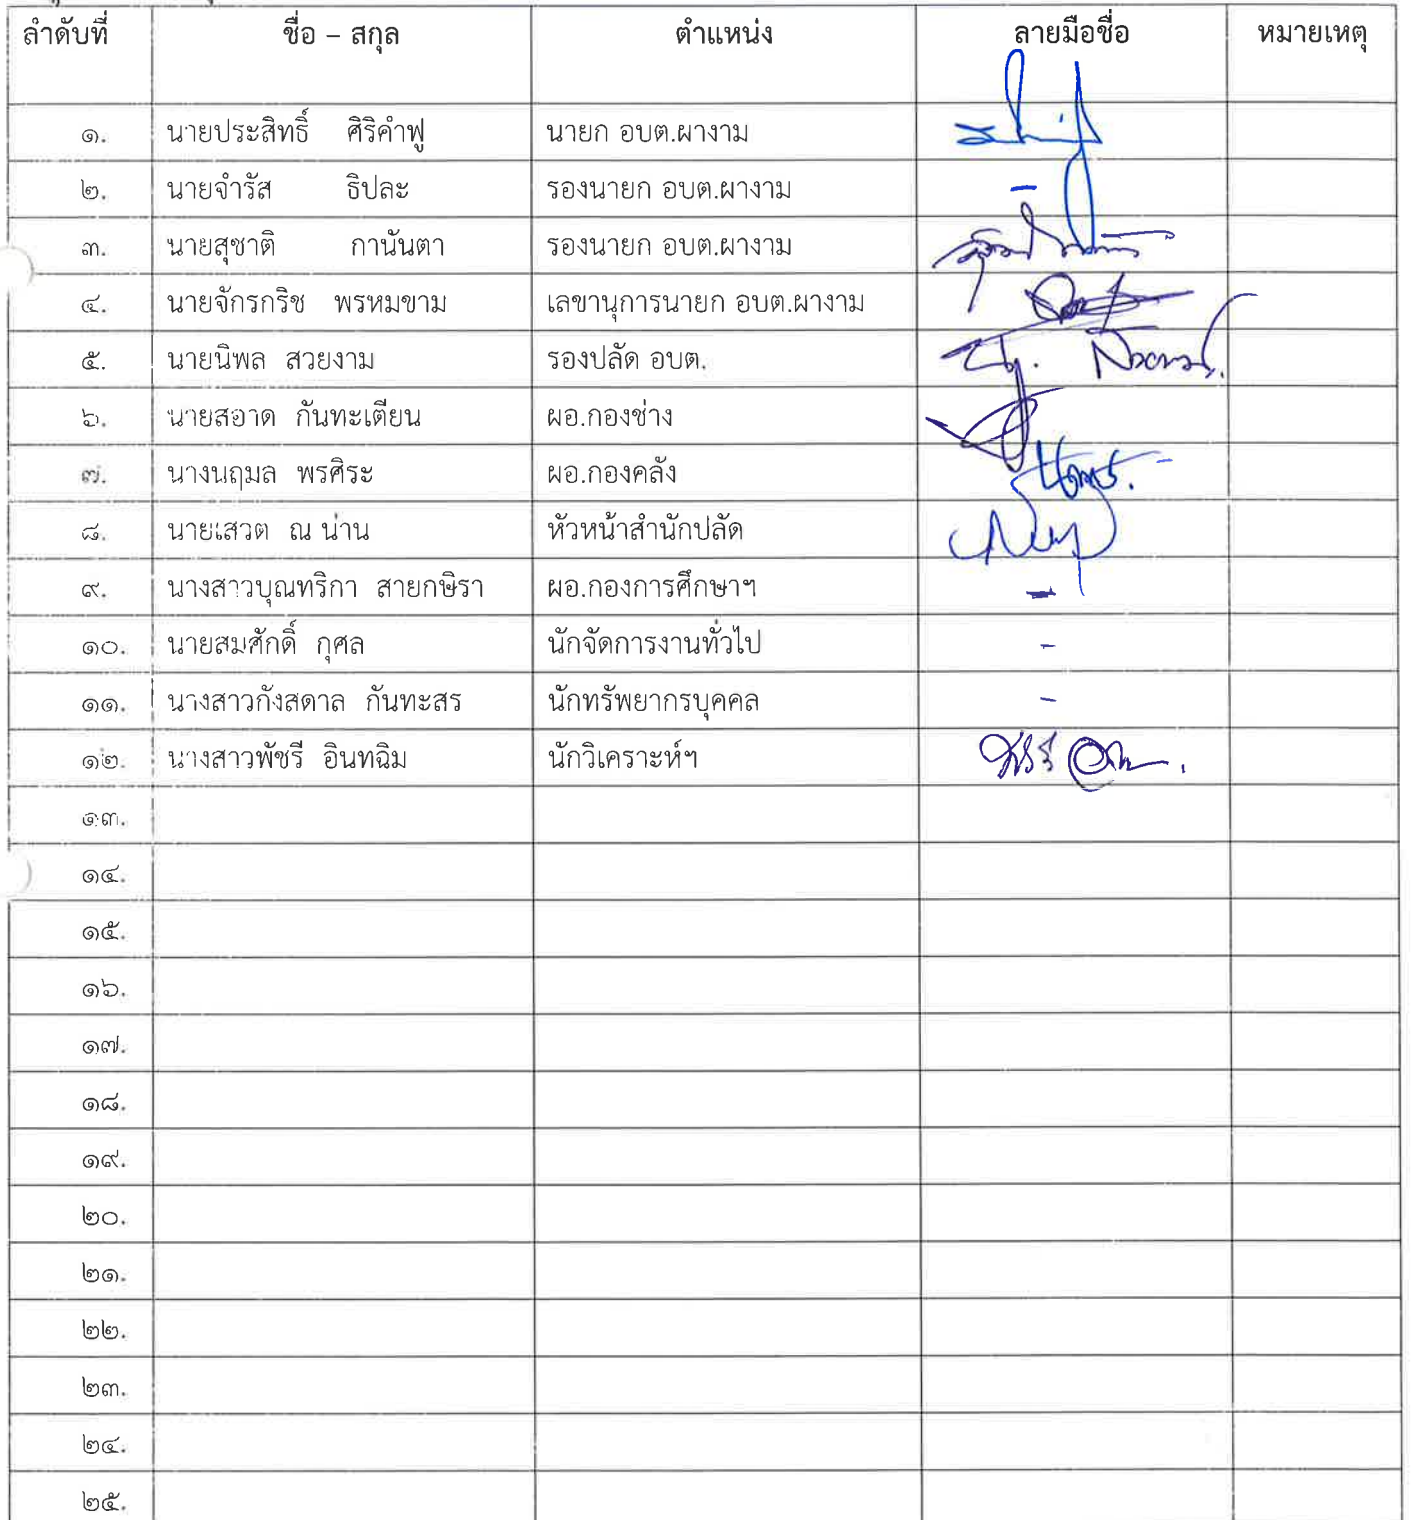 ลำดับที่ ชื่อ – สกุล ตำแหน่ง ลายมือชื่อ หมายเหตุ
๑. นายประสิทธิ์ ศิริคำฟู นายก อบต.ผางาม
๒. นายจำรัส ธิปละ รองนายก อบต.ผางาม -
๓. นายสุชาติ กานันตา รองนายก อบต.ผางาม
๔. นายจักรกริช พรหมขาม เลขานุการนายก อบต.ผางาม
๕. นายนิพล สวยงาม รองปลัด อบต.
๖. นายสอาด กันทะเตียน ผอ.กองช่าง
๗. นางนฤมล พรศิระ ผอ.กองคลัง
๘. นายเสวต ณ น่าน หัวหน้าสำนักปลัด
๙. นางสาวบุณทริกา สายกษิรา ผอ.กองการศึกษาฯ -
๑๐. นายสมศักดิ์ กุศล นักจัดการงานทั่วไป -
๑๑. นางสาวกังสดาล กันทะสร นักทรัพยากรบุคคล -
๑๒. นางสาวพัชรี อินทฉิม นักวิเคราะห์ฯ
๑๓.
๑๔.
๑๕.
๑๖.
๑๗.
๑๘.
๑๙.
๒๐.
๒๑.
๒๒.
๒๓.
๒๔.
๒๕.